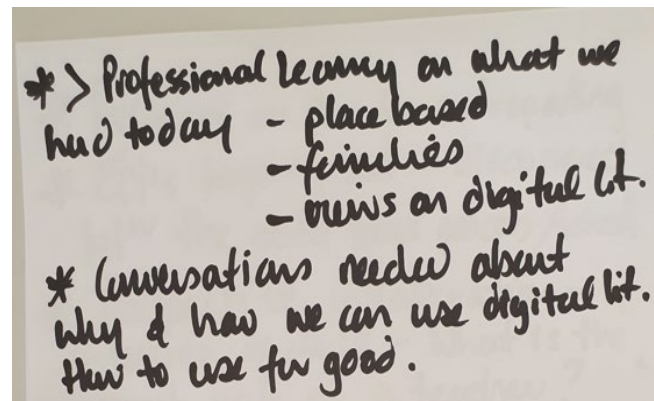 * > Professional Learning on what we
had today - place based
- families
- views on digital lit.
* Conversations needed about
why & how we can use digital lit.
How to use for good.